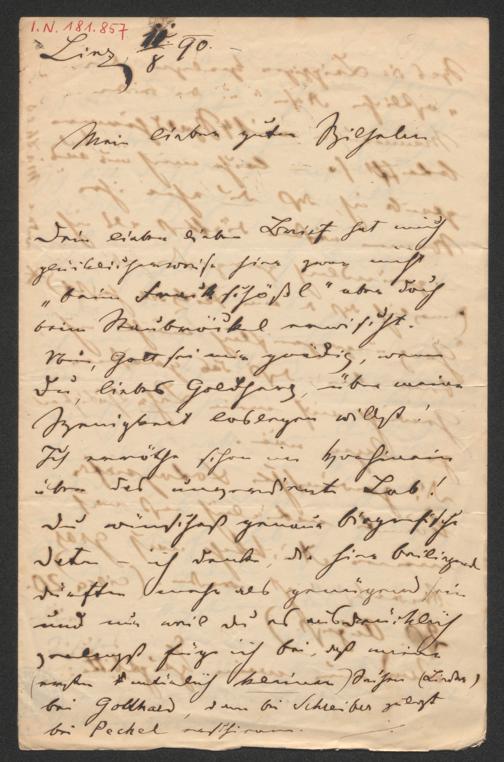 I.N. 181.857
Linz, 11/8 90. –
Mein lieber guter Wilhelm
Dein lieber lieber Brief hat mich
glücklicherweise hier zwar nicht
"beim Frackschößl" aber doch
beim Staubröckel erwischt.
Nun, Gott sei mir gnädig, wenn
Du, liebes Goldherz, über meine
Wenigkeit loslegen willst!
Ich erröthe schon im Vorhinein
über das unverdiente Lob!
Du wünschest genaue biografische
Daten – ich denke, die hier beiliegend
dürften mehr als genügend sein
und nur weil Du es ausdrücklich
verlangst füge ich bei, daß meine
(ersten natürlich kleinen) Sachen (Lieder)
bei Gotthard, dann bei Schreiber zuletzt
bei Peckel erschienen.